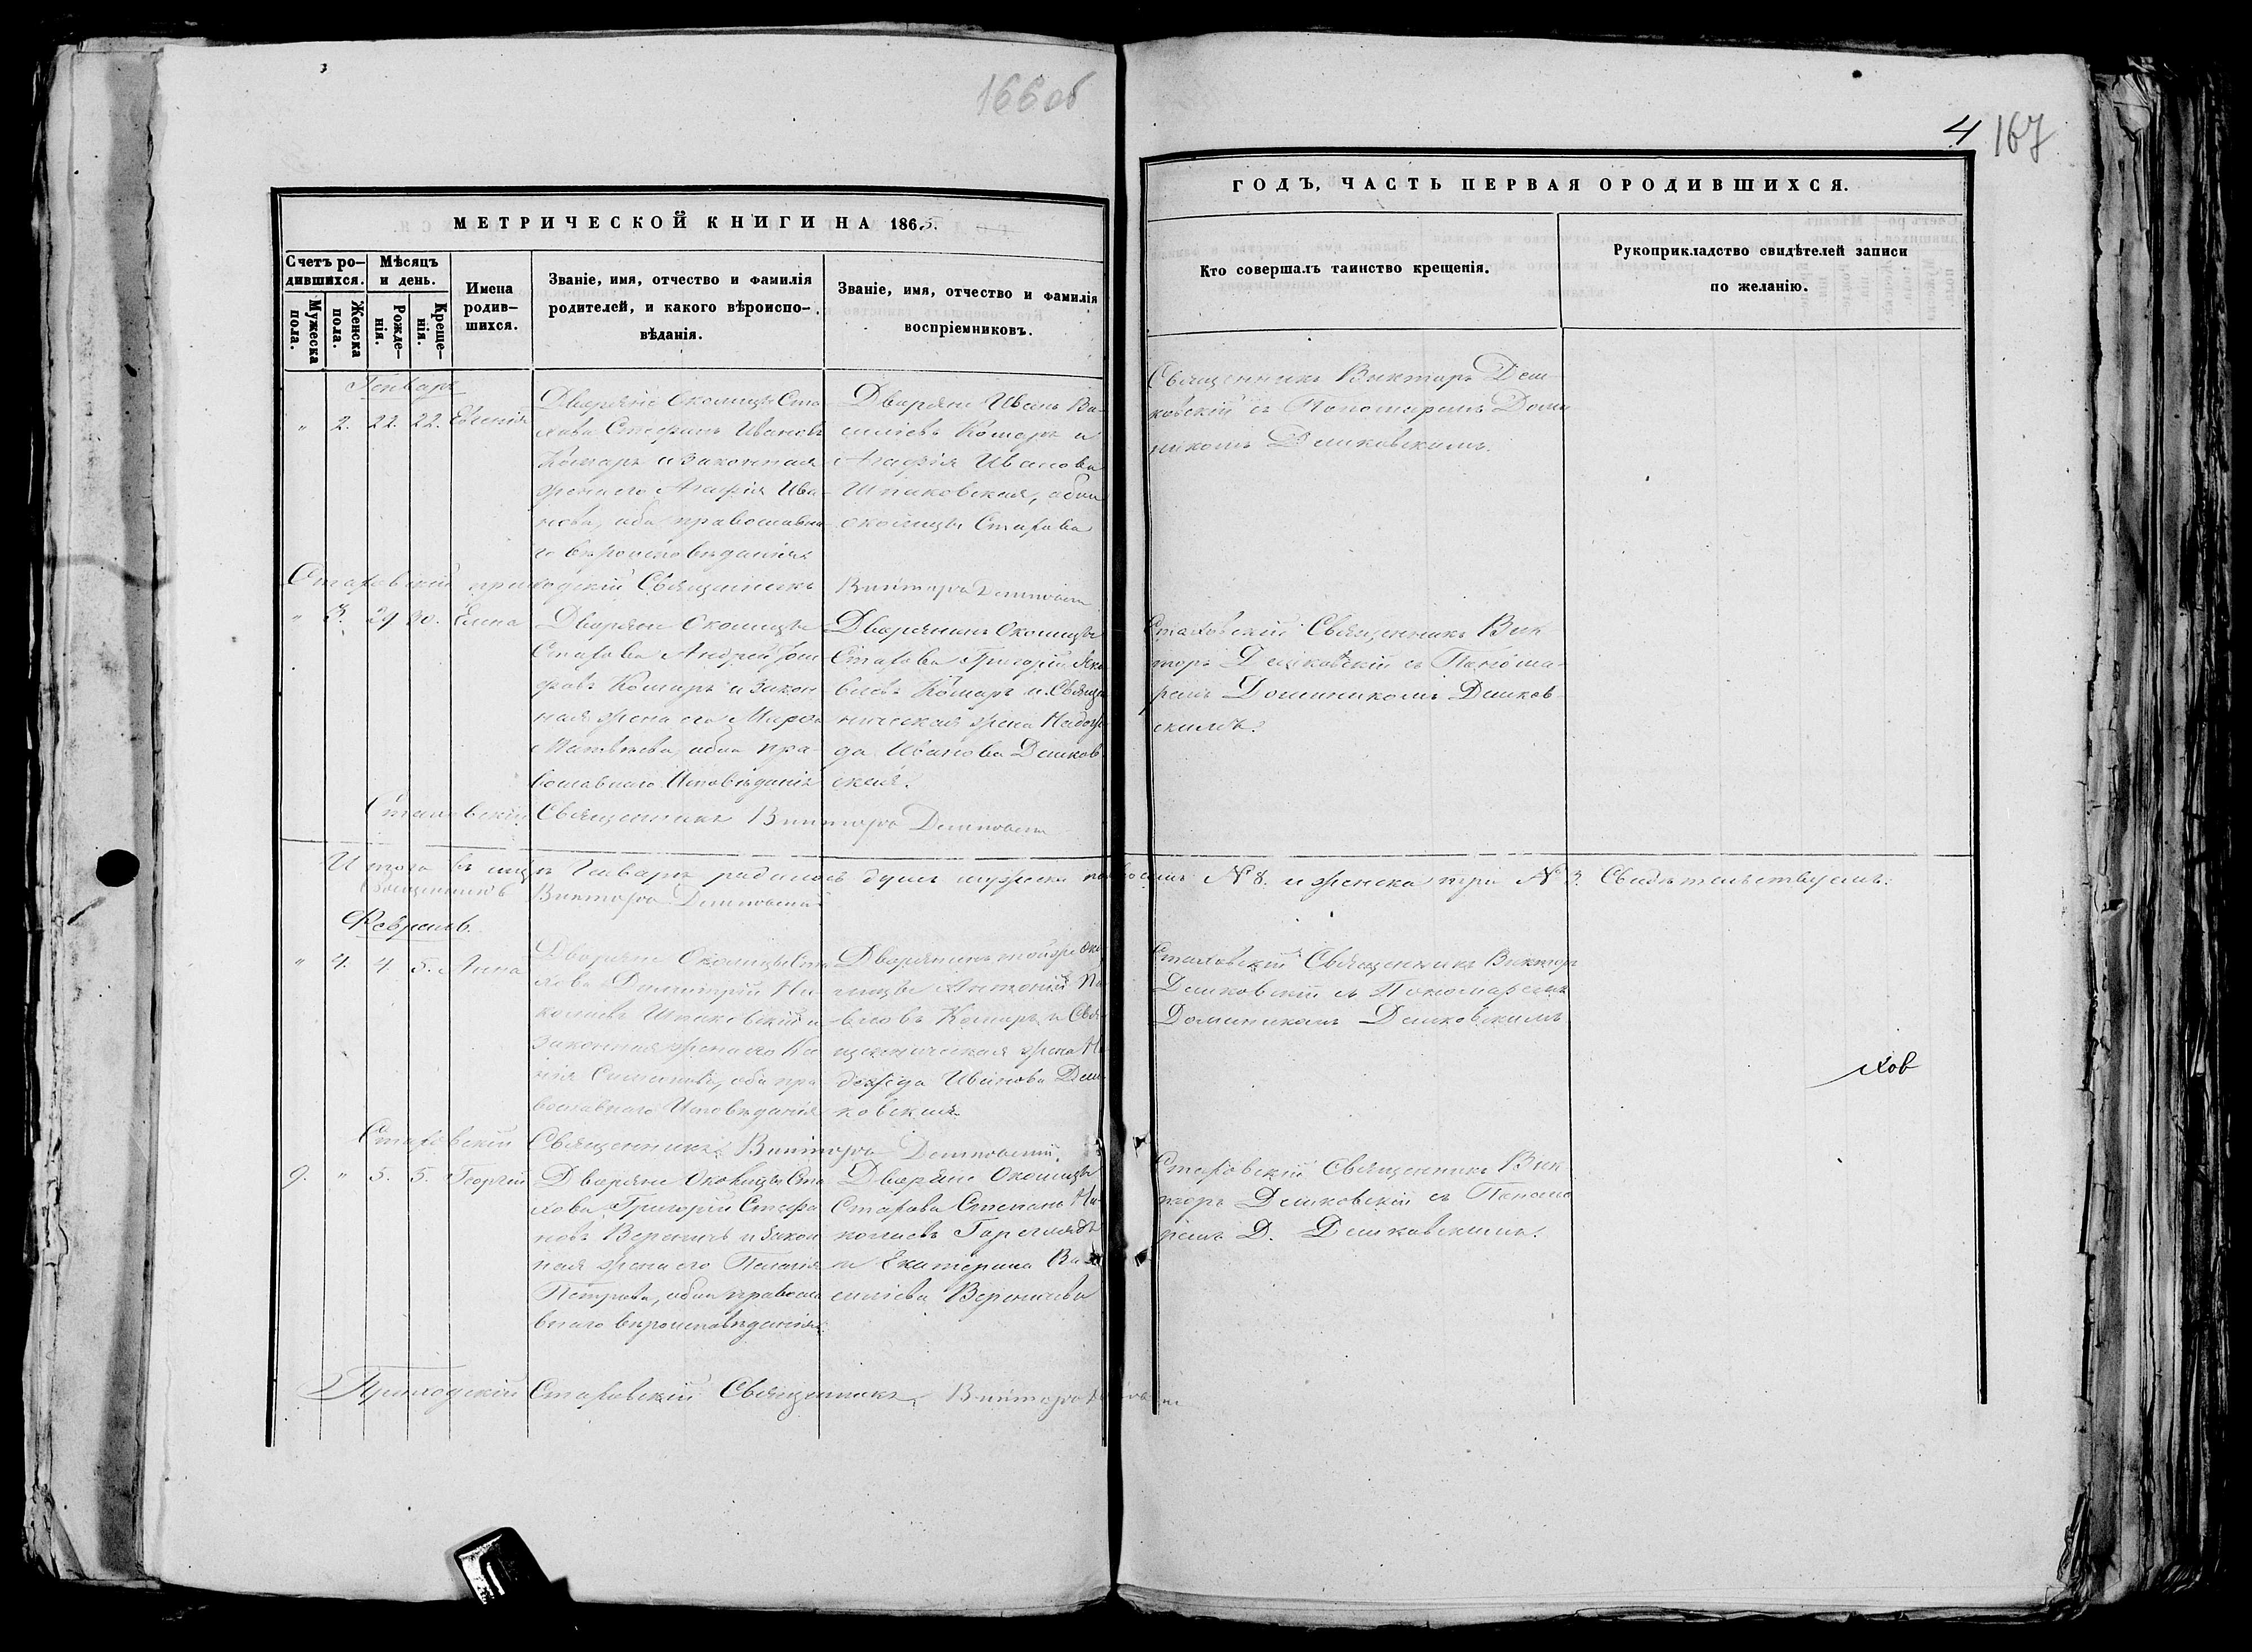 166 об
4 167
МЕТРИЧЕСКОЙ КНИГИ НА 1865.
ГОДЪ, ЧАСТЬ ПЕРВАЯ О РОДИВШИХСЯ.
Счетъ ро-
дившихся.
Мужеска
пола.
Женска
пола.
Мѣсяцъ
и день.
Рожде-
нія.
Креще-
нія.
Имена
родив-
шихся.
Званіе, имя, отчество и фамилія
родителей, и какого вѣроиспо-
вѣданія.
Званіе, имя, отчество и фамилія
воспріемниковъ.
Кто совершалъ таинство крещенія.
Рукоприкладство свидѣтелей записи
по желанію.
Генварь
" 2. 22. 22. Евгенія
Дворяне Околицы Ста-
хова Стефанъ Ивановъ
Комаръ и законная
жена его Агафія Ива-
нова, оба православна-
го вѣроисповѣданія
Дворяне Иванъ Ва-
силіевъ Комаръ и
Агафія Иванова
Шпаковская, обои
околицы Стахова
Священникъ Викторъ Деш-
ковскій съ Пономаремъ Доми
никомъ Дешковскимъ.
Стаховскій приходскій Священникъ Викторъ Дешковскій
" 3. 29 30. Елена
Дворяне Околицы
Стахова Андрей
Комаръ и закон
ная жена его
Матвѣева, обои пра-
вославнаго Исповѣданія
Дворянинъ Околицы
Стахова Григорій
Комаръ и Свяще
ническая жена Надеж
да Иванова Дешков
ская.
Стаховскій Священникъ Вик
торъ Дешковскій съ Панома-
ремъ Доминикомъ Дешков
скимъ.
Стаховскій Священникъ Викторъ Дешковскій
Итого въ мцѣ Генварѣ родилось душъ мужеска пола восемь № 8. и женска три № 3. Свидѣтельствуемъ:
Священникъ Викторъ Дешковскій
Февраль.
" 4. 4 5. Анна
Дворяне Околицы Ста
хова Димитрій Ни-
колаевъ Шпаковскій и
законная жена его
оба пра
вославнаго Исповѣданія
Дворянинъ той же Око
лицы Антоній Па
вловъ Комаръ и Свя
щеническая жена На
дежда Иванова Деш
ковская.
Стаховскій Священникъ Викторъ
Дешковскій съ Пономаремъ
Доминикомъ Дешковскимъ
хов
Стаховскій Священникъ Викторъ Дешковскій.
9. " 5. 5. Георгій
Дворяне Околицы Ста
хова Григорій Стефа
новъ Вереничъ и закон
ная жена его Пелагія
Петрова, обои правосла
внаго вѣроисповѣданія
Дворяне Околицы
Стахова Степанъ Ни-
колаевъ
и Екатерина Ва
силіева Вереничева
Стаховскій Священникъ Вик
торъ Дешковскій съ Поно
ремъ Д. Дешковскимъ.
Приходскій Стаховскій Священникъ Викторъ